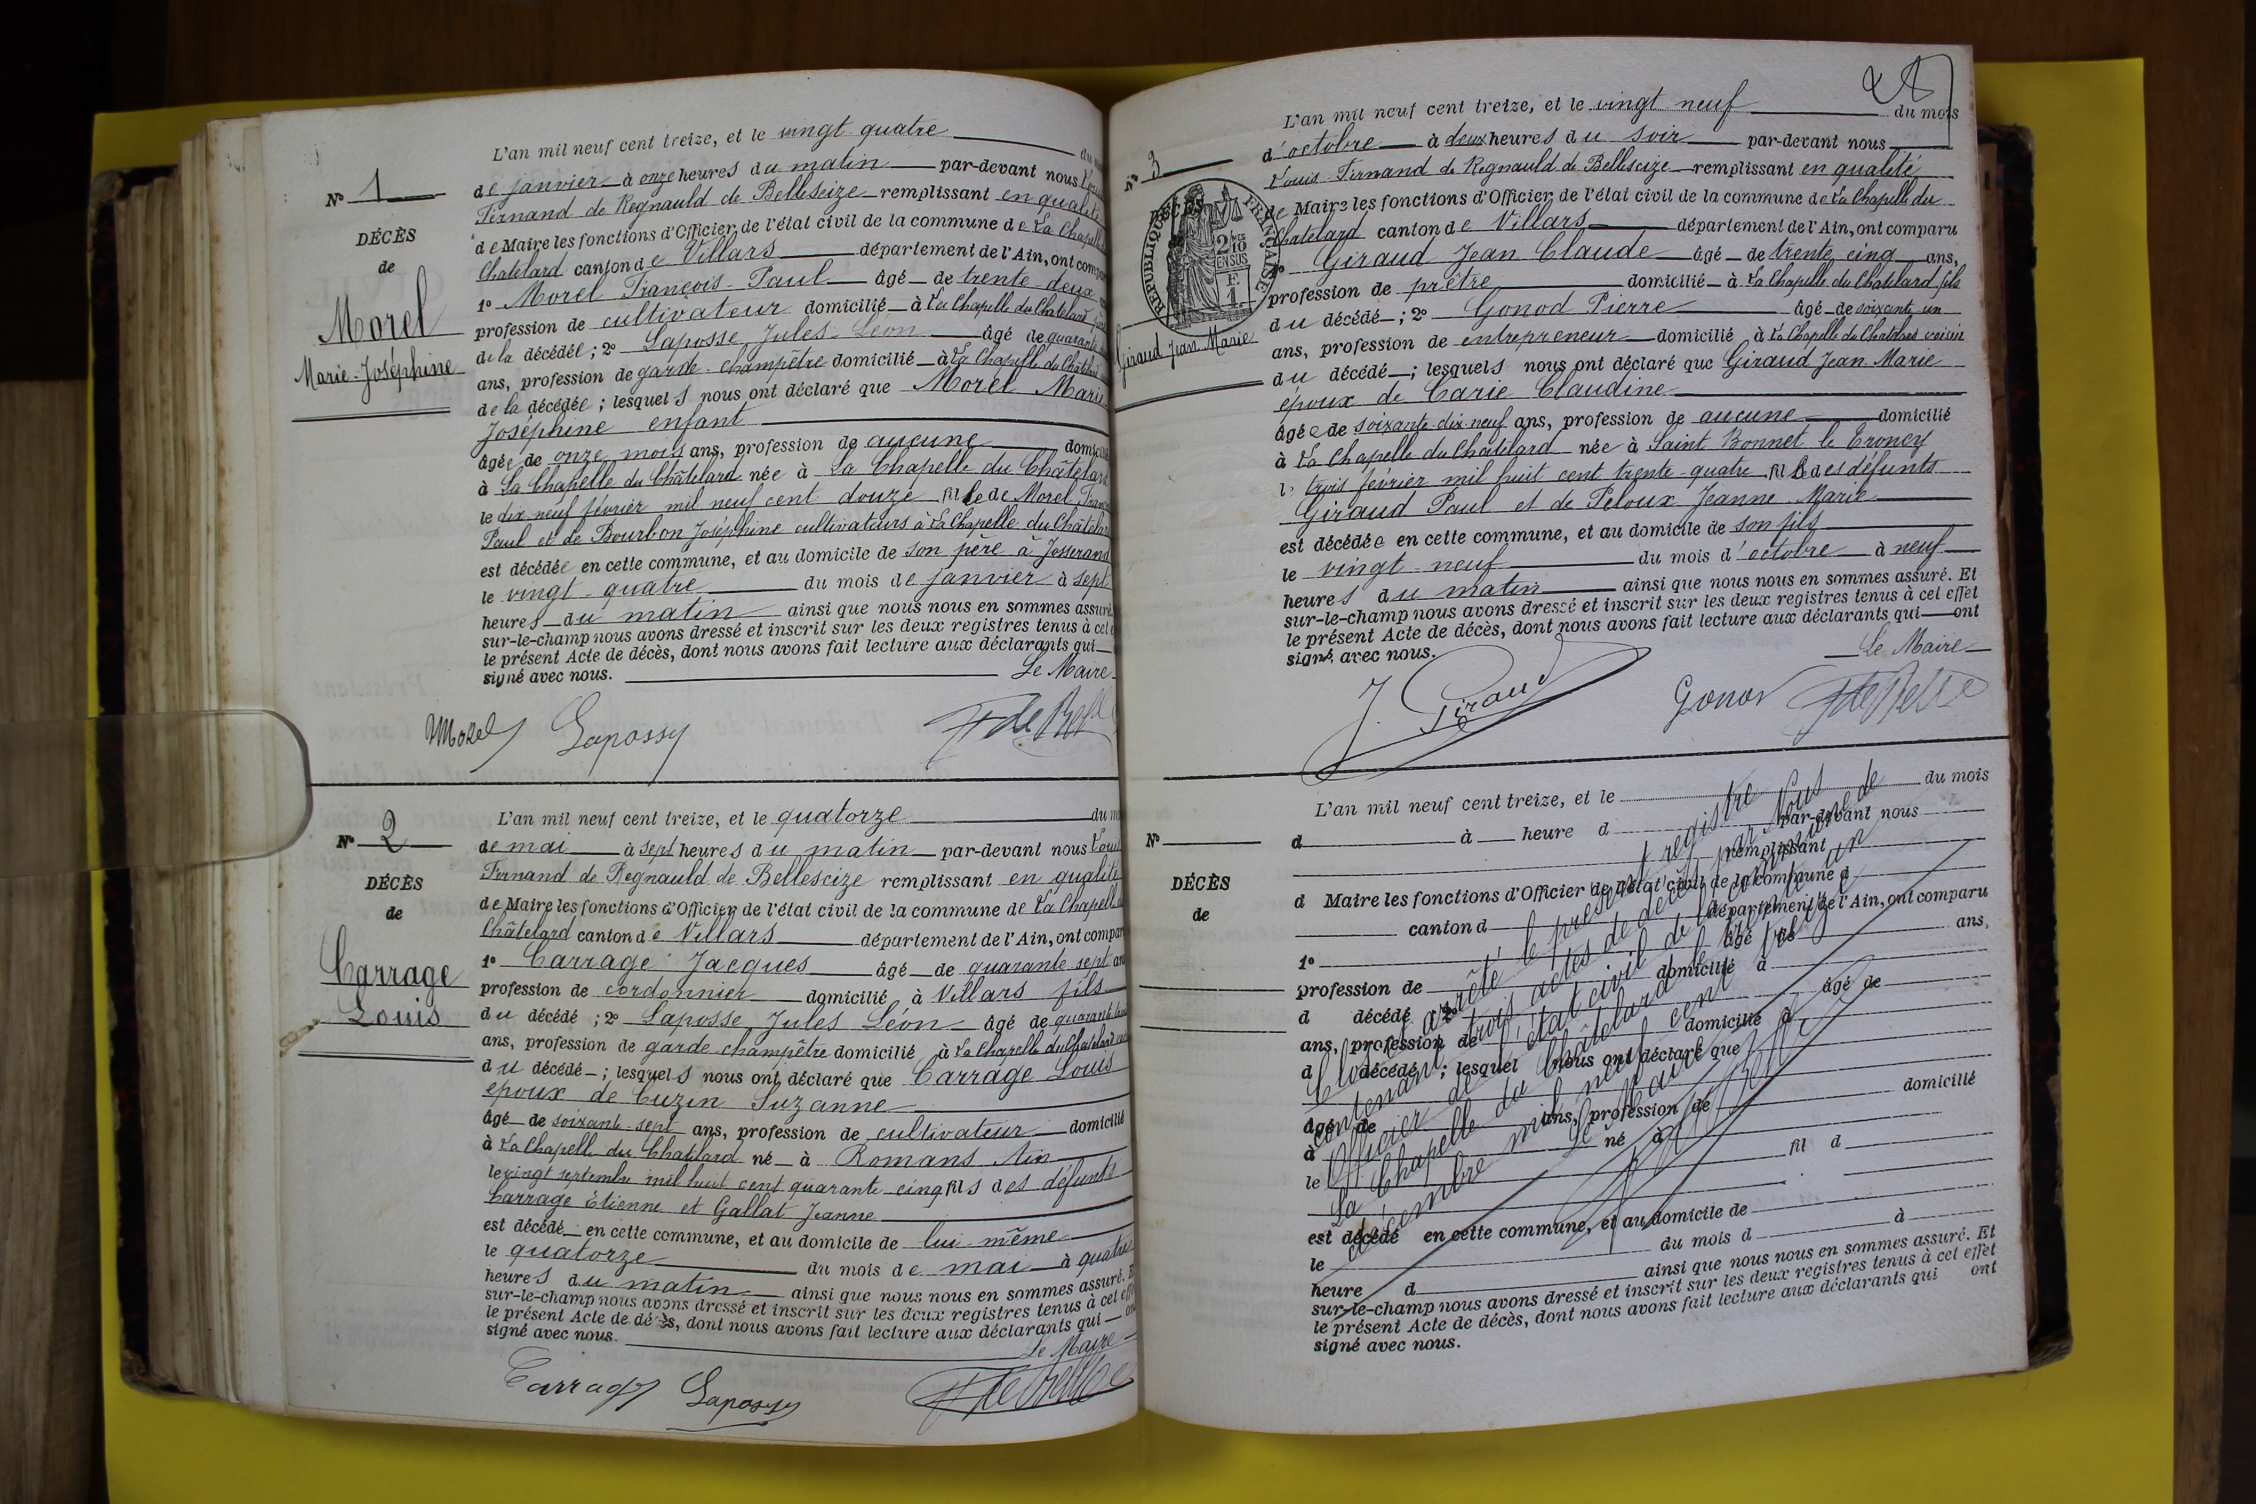 L'an mil neuf cent treize, et le vingt quatre
Nº 1
de janvier à onze heures du matin par-devant nous
Fernand de Regnauld de Bellescize remplissant en qualité
DÉCÈS
de
de Maire les fonctions d'Officier de l'état civil de la commune de La Chapelle
Chatelard canton de Villars département de l'Ain, ont
1º Morel François Paul âgé de trente deux
Morel
Marie-Joséphine
profession de cultivateur domicilié à La Chapelle du Chatelard
de la décédée ; 2º Laposse Jules Léon âgé de quarante
ans, profession de garde-champêtre domicilié à La Chapelle du
de la décédée ; lesquels nous ont déclaré que Morel Marie
Joséphine enfant
âgée de onze mois ans, profession de aucune
à La Chapelle du Châtelard née à La Chapelle du Châtelard
le dix neuf février mil neuf cent douze fille de Morel
Paul et de Bourbon Joséphine cultivateurs à La Chapelle du Châtelard
est décédée en cette commune, et au domicile de son père à Josserand
le vingt-quatre du mois de janvier à sept
heures du matin ainsi que nous nous en sommes assuré.
sur-le-champ nous avons dressé et inscrit sur les deux registres tenus à cet
le présent Acte de décès, dont nous avons fait lecture aux déclarants qui
signé avec nous. Le Maire
Morel Laposse F de Belle
L'an mil neuf cent treize, et le quatorze
Nº 2
de mai à sept heures du matin par-devant nous Louis
Fernand de Regnauld de Bellescize remplissant en qualité
DÉCÈS
de
de Maire les fonctions d'Officier de l'état civil de la commune de La Chapelle
Châtelard canton de Villars département de l'Ain, ont
1º Carrage Jacques âgé de quarante sept ans
Carrage
Louis
profession de cordonnier domicilié à Villars fils
du décédé ; 2º Laposse Jules Léon âgé de
ans, profession de garde champêtre domicilié à La Chapelle du Chatelard
du décédé ; lesquels nous ont déclaré que Carrage Louis
époux de Cuzin Suzanne
âgé de soixante-sept ans, profession de cultivateur domicilié
à La Chapelle du Chatelard né à Romans Ain
le vingt septembre mil huit cent quarante-cinq fils des défunts
Carrage Etienne et Gallat Jeanne
est décédé en cette commune, et au domicile de lui-même
le quatorze du mois de mai à quatre
heures du matin ainsi que nous nous en sommes assuré.
sur-le-champ nous avons dressé et inscrit sur les deux registres tenus à cet
le présent Acte de décès, dont nous avons fait lecture aux déclarants qui
signé avec nous. Le Maire
Carrage Laposse F de Belle
L'an mil neuf cent treize, et le vingt neuf du mois
Nº 3
d'octobre à deux heures du soir par-devant nous
Louis Fernand de Regnauld de Bellescize remplissant en qualité
DÉCÈS
RÉPUBLIQUE FRANÇAISE
2/10 EN SUS
F. 1.
de Maire les fonctions d'Officier de l'état civil de la commune de La Chapelle du
Chatelard canton de Villars département de l'Ain, ont comparu
1º Giraud Jean Claude âgé de trente cinq ans,
profession de prêtre domicilié à La Chapelle du Chatelard fils
du décédé ; 2º Gonod Pierre âgé de soixante un
Giraud Jean Marie
ans, profession de entrepreneur domicilié à La Chapelle du Chatelard voisin
du décédé ; lesquels nous ont déclaré que Giraud Jean Marie
époux de Carie Claudine
âgé de soixante-dix-neuf ans, profession de aucune domicilié
à La Chapelle du Châtelard né à Saint Bonnet le Troncy
le trois février mil huit cent trente-quatre fils des défunts
Giraud Paul et de Peloux Jeanne Marie
est décédé en cette commune, et au domicile de son fils
le vingt-neuf du mois d'octobre à neuf
heures du matin ainsi que nous nous en sommes assuré. Et
sur-le-champ nous avons dressé et inscrit sur les deux registres tenus à cet effet
le présent Acte de décès, dont nous avons fait lecture aux déclarants qui ont
signé avec nous. Le Maire
J. Giraud Gonod F de Belle
L'an mil neuf cent treize, et le du mois
Nº
d à heure d par-devant nous
remplissant
DÉCÈS
de
d Maire les fonctions d'Officier de l'état civil de la commune d
canton d département de l'Ain, ont comparu
1º âgé de ans,
profession de domicilié à
d décédé ; 2º âgé de
ans, profession de domicilié à
d décédé ; lesquel nous ont déclaré que
âgé de ans, profession de domicilié
à né à
le fil d
est décédé en cette commune, et au domicile de
le du mois d à
heure d ainsi que nous nous en sommes assuré. Et
sur-le-champ nous avons dressé et inscrit sur les deux registres tenus à cet effet
le présent Acte de décès, dont nous avons fait lecture aux déclarants qui ont
signé avec nous.
Clos et arrêté le présent registre
contenant trois actes de décès par Nous
Officier de l'état civil de la commune de
La Chapelle du Châtelard le trente un
décembre mil neuf cent treize
Le Maire
F de Belle